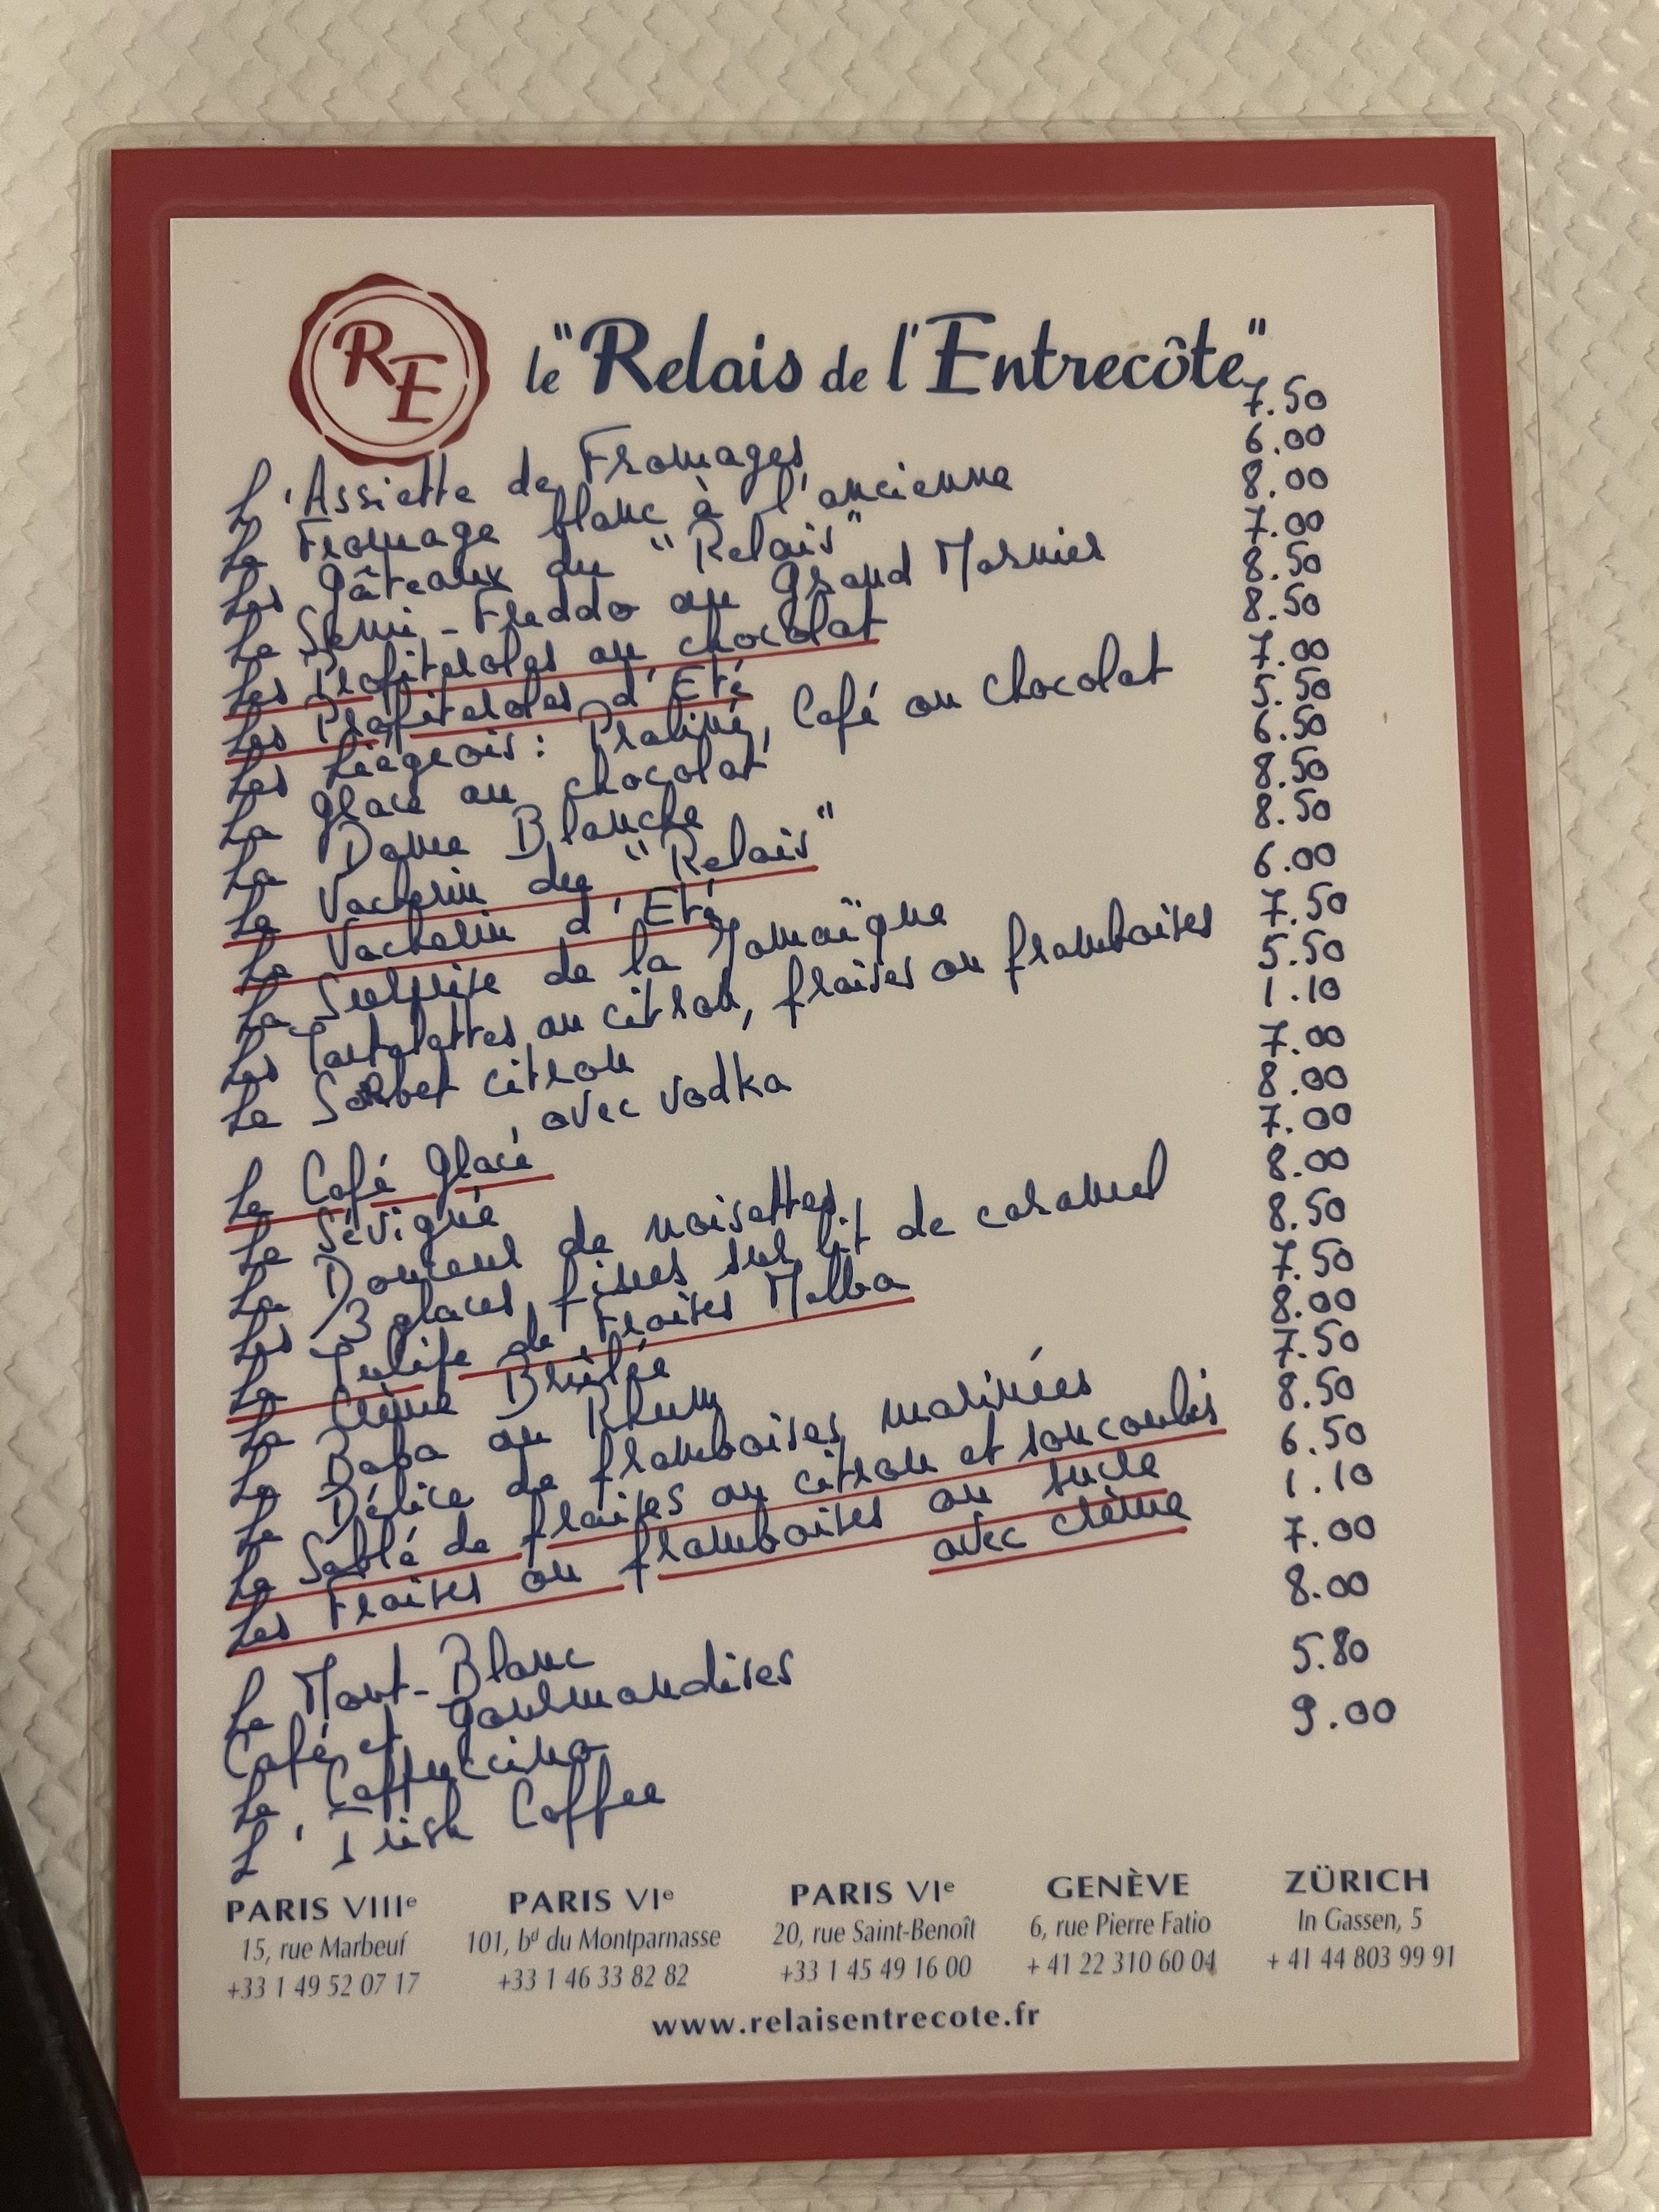 RE
le "Relais de l'Entrecôte"
L'Assiette de Fromages 7.50
Le Fromage blanc à l'ancienne 6.00
Les Gâteaux du "Relais" 8.00
Le Semi-Freddo au Grand Marnier 7.00
Les Profiteroles au chocolat 8.50
Les Profiteroles d'Eté 8.50
Les Liégeois: Praliné, Café ou Chocolat 7.00
La glace au chocolat 5.50
La Dame Blanche 6.50
Le Vacherin du "Relais" 8.50
Le Vacherin d'Eté 8.50
La Surprise de la Jamaïque 6.00
Les Tartelettes au citron, fraises ou framboises 7.50
Le Sorbet citron 5.50
, avec vodka 1.10
Le Café glacé 7.00
Le Sévigné 8.00
La Douceur de noisettes 7.00
Les 3 glaces fines sur lit de caramel 8.00
La Tulipe de Fraises Melba 8.50
La Crème Brûlée 7.50
Le Baba au Rhum 8.00
Le Délice de framboises marinées 7.50
Le Sablé de fraises au citron et son coulis 8.50
Les Fraises ou framboises au sucre 6.50
avec crème 1.10
Le Mont-Blanc 7.00
Café et gourmandises 8.00
Le Cappuccino 5.80
L'Irish Coffee 9.00
PARIS VIIIe PARIS VIe PARIS VIe GENÈVE ZÜRICH
15, rue Marbeuf 101, bd du Montparnasse 20, rue Saint-Benoît 6, rue Pierre Fatio In Gassen, 5
+33 1 49 52 07 17 +33 1 46 33 82 82 +33 1 45 49 16 00 + 41 22 310 60 04 + 41 44 803 99 91
www.relaisentrecote.fr